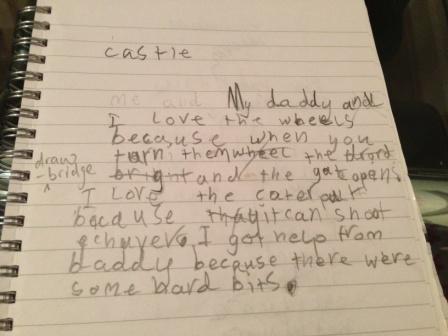 castle
me and My daddy and
I love the wheels
because when you
turn them wheel the drord
draw
-bridge
bright and the gate opens.
I Love the caterpult
becduse thay it can shoot
I got help from
Daddy because there were
some hard bits.